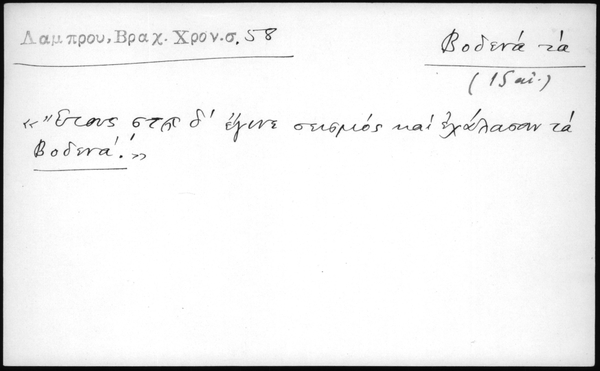 Λαμπρου, Βραχ. Χρον. σ. 58
Βοδενά τά
(15 αἰ.)
«"Ετους δ' ἐγινε σεισμός καί ἐχάλασαν τά
Βοδενά.»